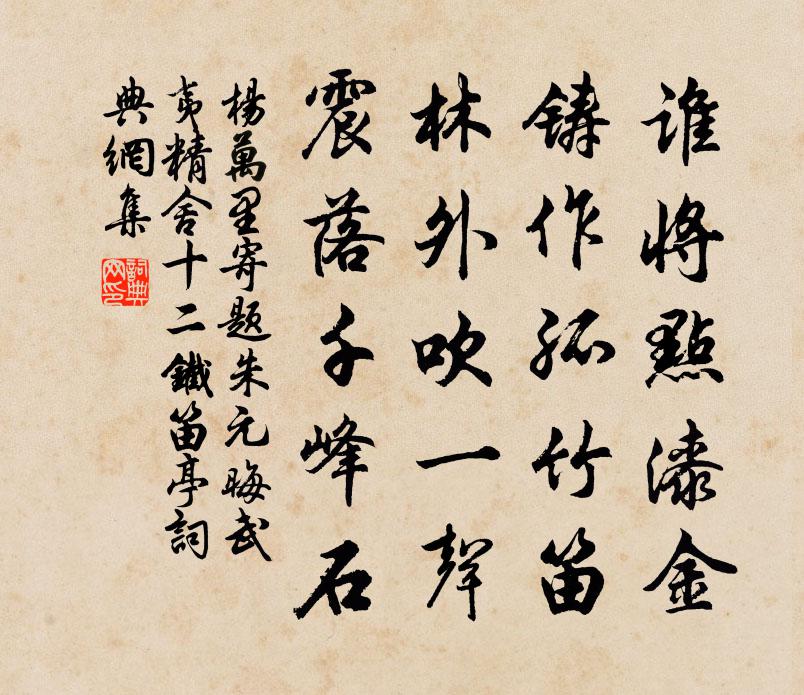 谁將點漆金
鑄作孤竹笛
林外吹一聲
震落千峰石
楊萬里寄題朱元晦武
夷精舍十二鐵笛亭詞
典網集
詞典
网印